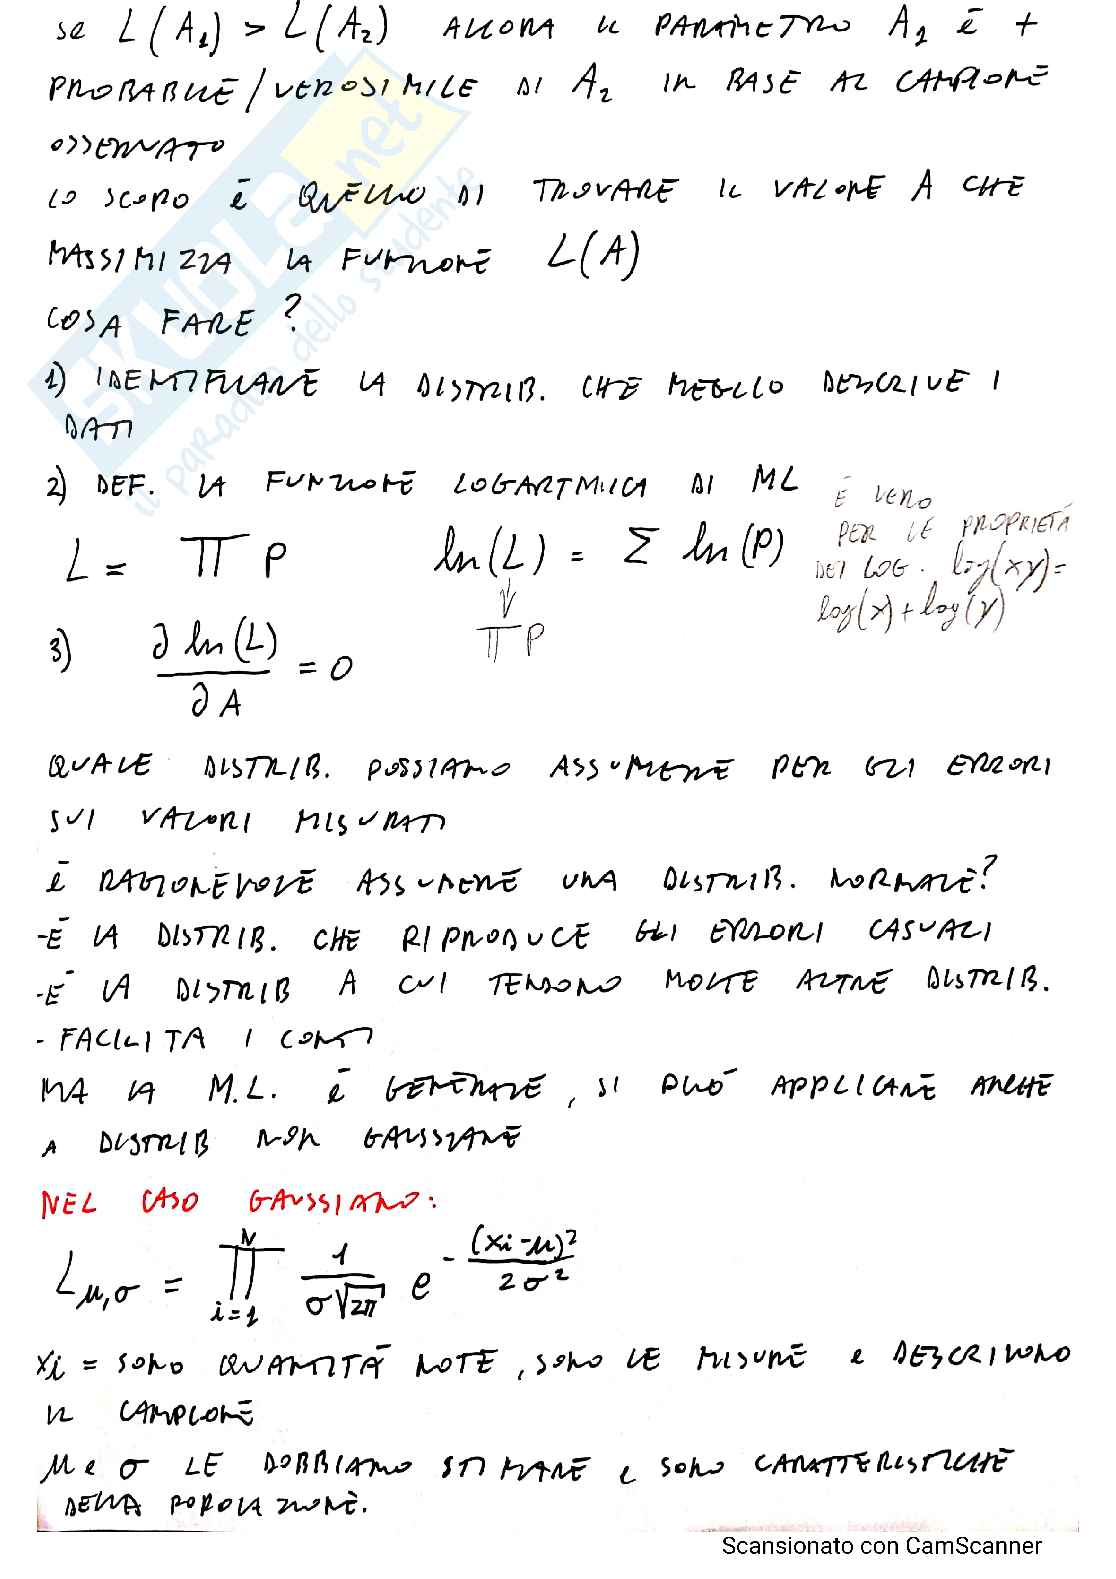 se L(A₁) > L(A₂) ALLORA IL PARAMETRO A₁ È +
PROBABILE/VEROSIMILE DI A₂ IN BASE AL CAMPIONE
OSSERVATO
LO SCOPO È QUELLO DI TROVARE IL VALORE A CHE
MASSIMIZZA LA FUNZIONE L(A)
COSA FARE?
1) IDENTIFICARE LA DISTRIB. CHE MEGLIO DESCRIVE I
DATI
2) DEF. LA FUNZIONE LOGARTMICA DI ML
È VERO
PER LE PROPRIETÀ
DEI LOG. log(xy)=
log(x)+log(y)
L = ∏ P ln(L) = Σ ln(P)
∏ P
3) ∂ ln(L) / ∂A = 0
QUALE DISTRIB. POSSIAMO ASSUMERE PER GLI ERRORI
SUI VALORI MISURATI
È RAGIONEVOLE ASSUMERE UNA DISTRIB. NORMALE?
-È LA DISTRIB. CHE RIPRODUCE GLI ERRORI CASUALI
-È LA DISTRIB A CUI TENDONO MOLTE ALTRE DISTRIB.
- FACILITA I CONTI
MA LA M.L. È GENERALE, SI PUÒ APPLICARE ANCHE
A DISTRIB NON GAUSSIANE
NEL CASO GAUSSIANO:
L_{μ,σ} = ∏_{i=1}^{N} 1/(σ√2π) e^{-(xi-μ)²/2σ²}
xi = SONO QUANTITÀ NOTE, SONO LE MISURE e DESCRIVONO
IL CAMPIONE
μ e σ LE DOBBIAMO STIMARE e SONO CARATTERISTICHE
DELLA POPOLAZIONE.
SKUOLA.net
il paradiso dello studente
Scansionato con CamScanner